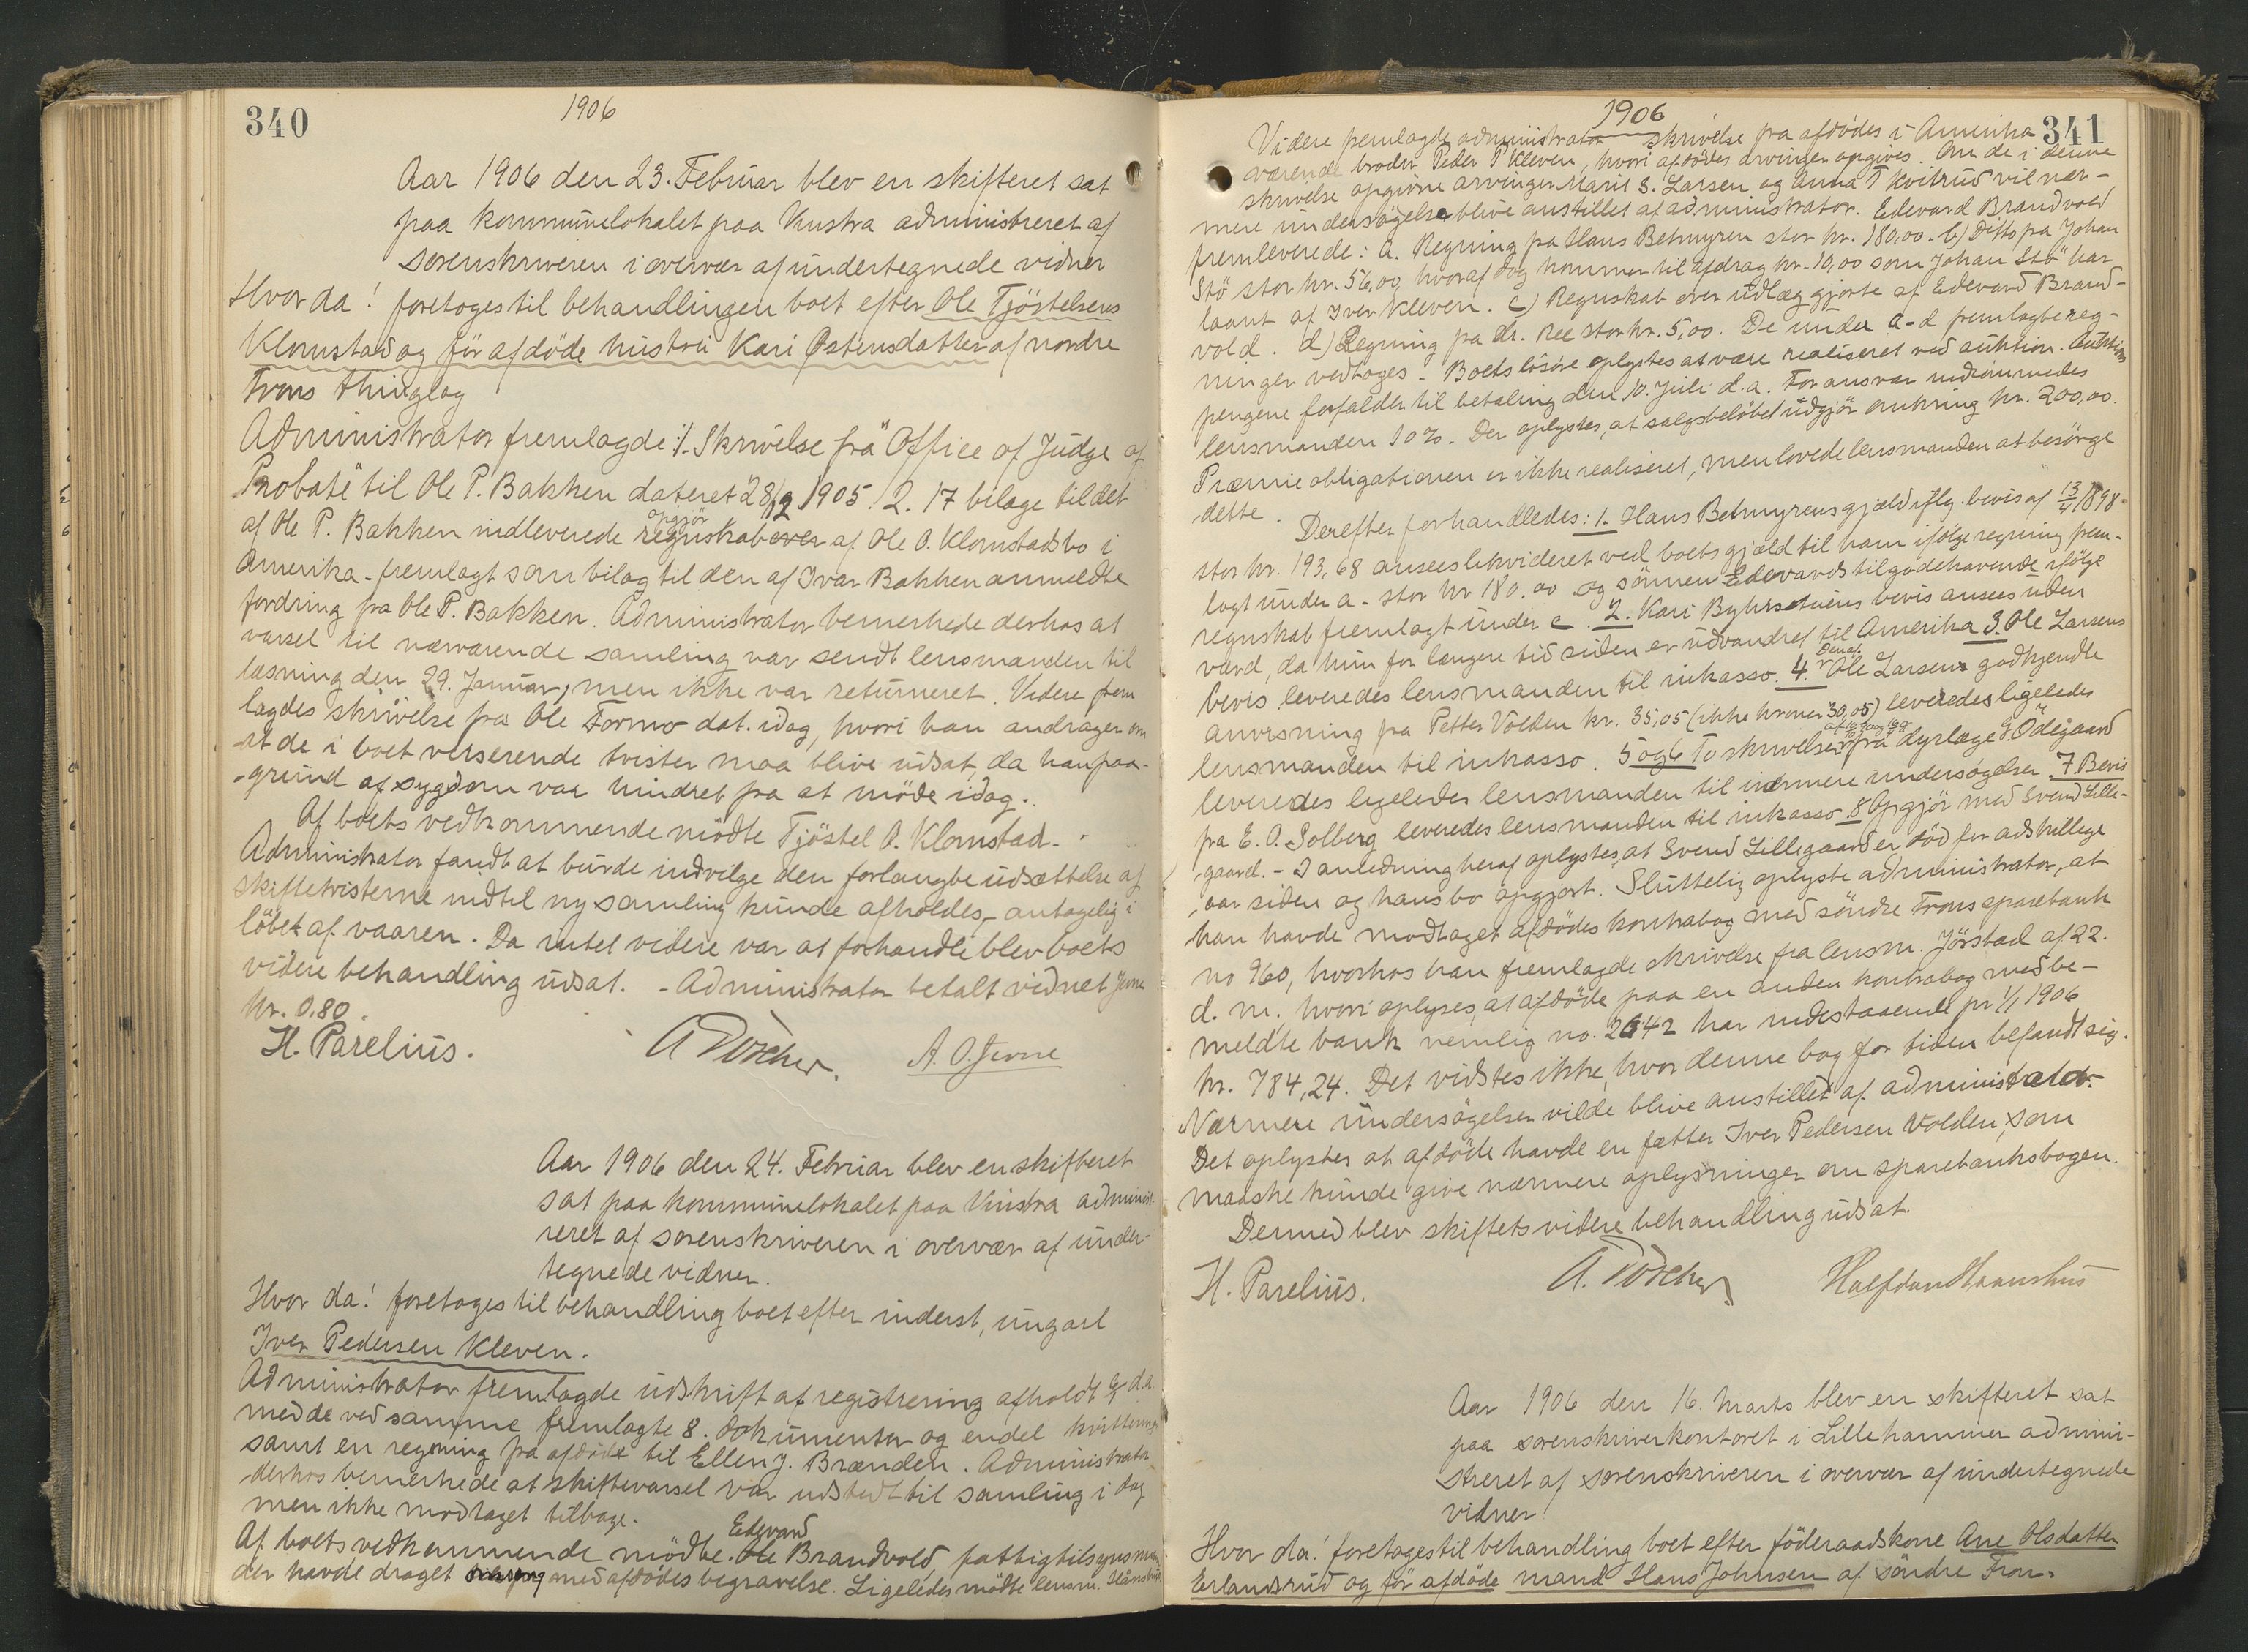 340
1906
Aar 1906 den 23. Februar blev en skifteret sat
paa kommunelokalet paa Vinstra administreret af
sorenskriveren i overvær af undertegnede vidner
Hvor da! foretoges til behandlingen boet efter Ole Tjöstelsens
Klomstad og för afdöde hustru Kari Østensdatter af nordre
Frons thinglag
Administrator fremlagde: 1. Skrivelse fra "Office of Judge of
Probate" til Ole P. Bakken dateret 28/12 1905. 2. 17 bilage til det
af Ole P. Bakken indleverede regnskab over opgjör af Ole O. Klomstads bo i
Amerika - fremlagt som bilag til den af Ivar Bakken anmeldte
fordring fra Ole P. Bakken. Administrator bemerkede derhos at
varsel til nærværende samling var sendt lensmanden til
læsning den 29. Januar, men ikke var returneret. Videre frem
lagdes skrivelse fra Ole Formo dat. idag, hvori han andrager om
at de i boet verserende tvister maa blive udsat, da han paa-
grund af sygdom var hindret fra at möde idag.
Af boets vedkommende mödte Tjöstel O. Klomstad.
Administrator fandt at burde indvilge den forlangte udsættelse af
skiftetvisterne indtil ny samling kunde afholdes, - antagelig i
löbet af vaaren. Da intet videre var at forhandle blev boets
videre behandling udsat. - Administrator betalt vidnet Jevne
kr. 0.80.
H. Parelius.
A. O. Jevne
Aar 1906 den 24. Februar blev en skifteret
sat paa kommunelokalet paa Vinstra administ-
reret af sorenskriveren i overvær af under-
tegnede vidner.
Hvor da! foretoges til behandling boet efter inderst, ungarl
Iver Pedersen Kleven.
Administrator fremlagde udskrift af registrering afholdt d.a.
med de ved samme fremlagte 8. dokumenter og endel kvitteringer
samt en regning fra afdöde til Ellen J. Brænden. Administrator
derhos bemerkede at skiftevarsel var udstedt til samling i dag
men ikke modtaget tilbage.
Af boets vedkommende mödte Ole Edevard Brandvold, fattigtilsynsman
der havde draget omsorg med afdödes begravelse. Ligeledes mödte lensm.
341
1906
Videre fremlagde administrator skrivelse fra afdödes i Amerika
værende broder Peder P. Kleven, hvori afdödes arvinger opgives. Om de i denne
skrivelse opgivne arvinger Marit S. Larsen og Anna T. Kvitrud vil nær-
mere undersögelse blive anstillet af administrator. Edevard Brandvold
fremleverede: a. Regning fra Hans Betmyren stor kr. 180.00. b) Ditto fra Johan
Stö stor kr. 56,00 hvoraf dog kommer til afdrag kr. 10,00 som Johan Stö har
laant af Iver Kleven. c) Regnskab over udlæg gjorte af Edevard Brand-
vold. d) Regning fra dr. Ree stor kr. 5,00. De under a-d fremlagte reg-
ninger vedtages. - Boets lösöre oplystes at være realiseret ved auktion. Auktions
pengene forfalder til betaling den 10. Juli d.a. For ansvar indrömmedes
lensmanden 10%. Der oplystes, at salgsbelöbet udgjör omkring kr. 200,00.
Præmieobligationen er ikke realiseret, men lovede lensmanden at besörge
dette.
Derefter forhandledes: 1. Hans Betmyrens gjæld iflg. bevis af 13/4 1898
stor kr. 193,68 ansees likvideret ved boets gjæld til ham ifölge regning frem-
lagt under a. stor kr 180.00 og sönnen Edevards tilgodehavende ifölge
regnskab fremlagt under c. 2. Kari Byhrstuens bevis ansees uden
værd, da hun for længere tid siden er udvandret til Amerika 3. Ole Larsens
bevis leveredes lensmanden til inkasso. 4. Den af Ole Larsen godkjendte
anvisning fra Petter Volden kr. 35,05 (ikke kroner 30,05) leveredes ligeledes
lensmanden til inkasso. 5 og 6 To skrivelser fra dyrlæge Ödegaard
leveredes ligeledes lensmanden til nærmere undersögelse. 7. Bevis
fra E. O. Solberg leveredes lensmanden til inkasso 8 Opgjör med Svend Lille-
gaard. - I anledning heraf oplystes, at Svend Lillegaard er död for adskillige
aar siden og hans bo opgjort. Sluttelig oplyste administrator, at
han havde modtaget afdödes kontrabog med söndre Frons sparebank
no 960, hvorhos han fremlagde skrivelse fra lensm. Jörstad af 22.
d. m., hvori oplyses, at afdöde paa en anden kontrabog med be-
meldte bank nemlig no. 2642 har indestaaende pr 1/1 1906
kr. 784,24. Det vidstes ikke, hvor denne bog for tiden befandt sig.
Nærmere undersögelser vilde blive anstillet af administrator.
Det oplystes at afdöde havde en fætter Iver Pedersen Volden, som
maaske kunde give nærmere oplysninger om sparebanksbogen.
Dermed blev skiftets videre behandling udsat.
H. Parelius.
Aar 1906 den 16. Marts blev en skifteret sat
paa sorenskriverkontoret i Lillehammer admini-
streret af sorenskriveren i overvær af undertegnede
vidner
Hvor da! foretoges til behandling boet efter föderaadskone Ane Olsdatter
Erlandsrud og för afdöde mand Hans Johnsen af söndre Fron.